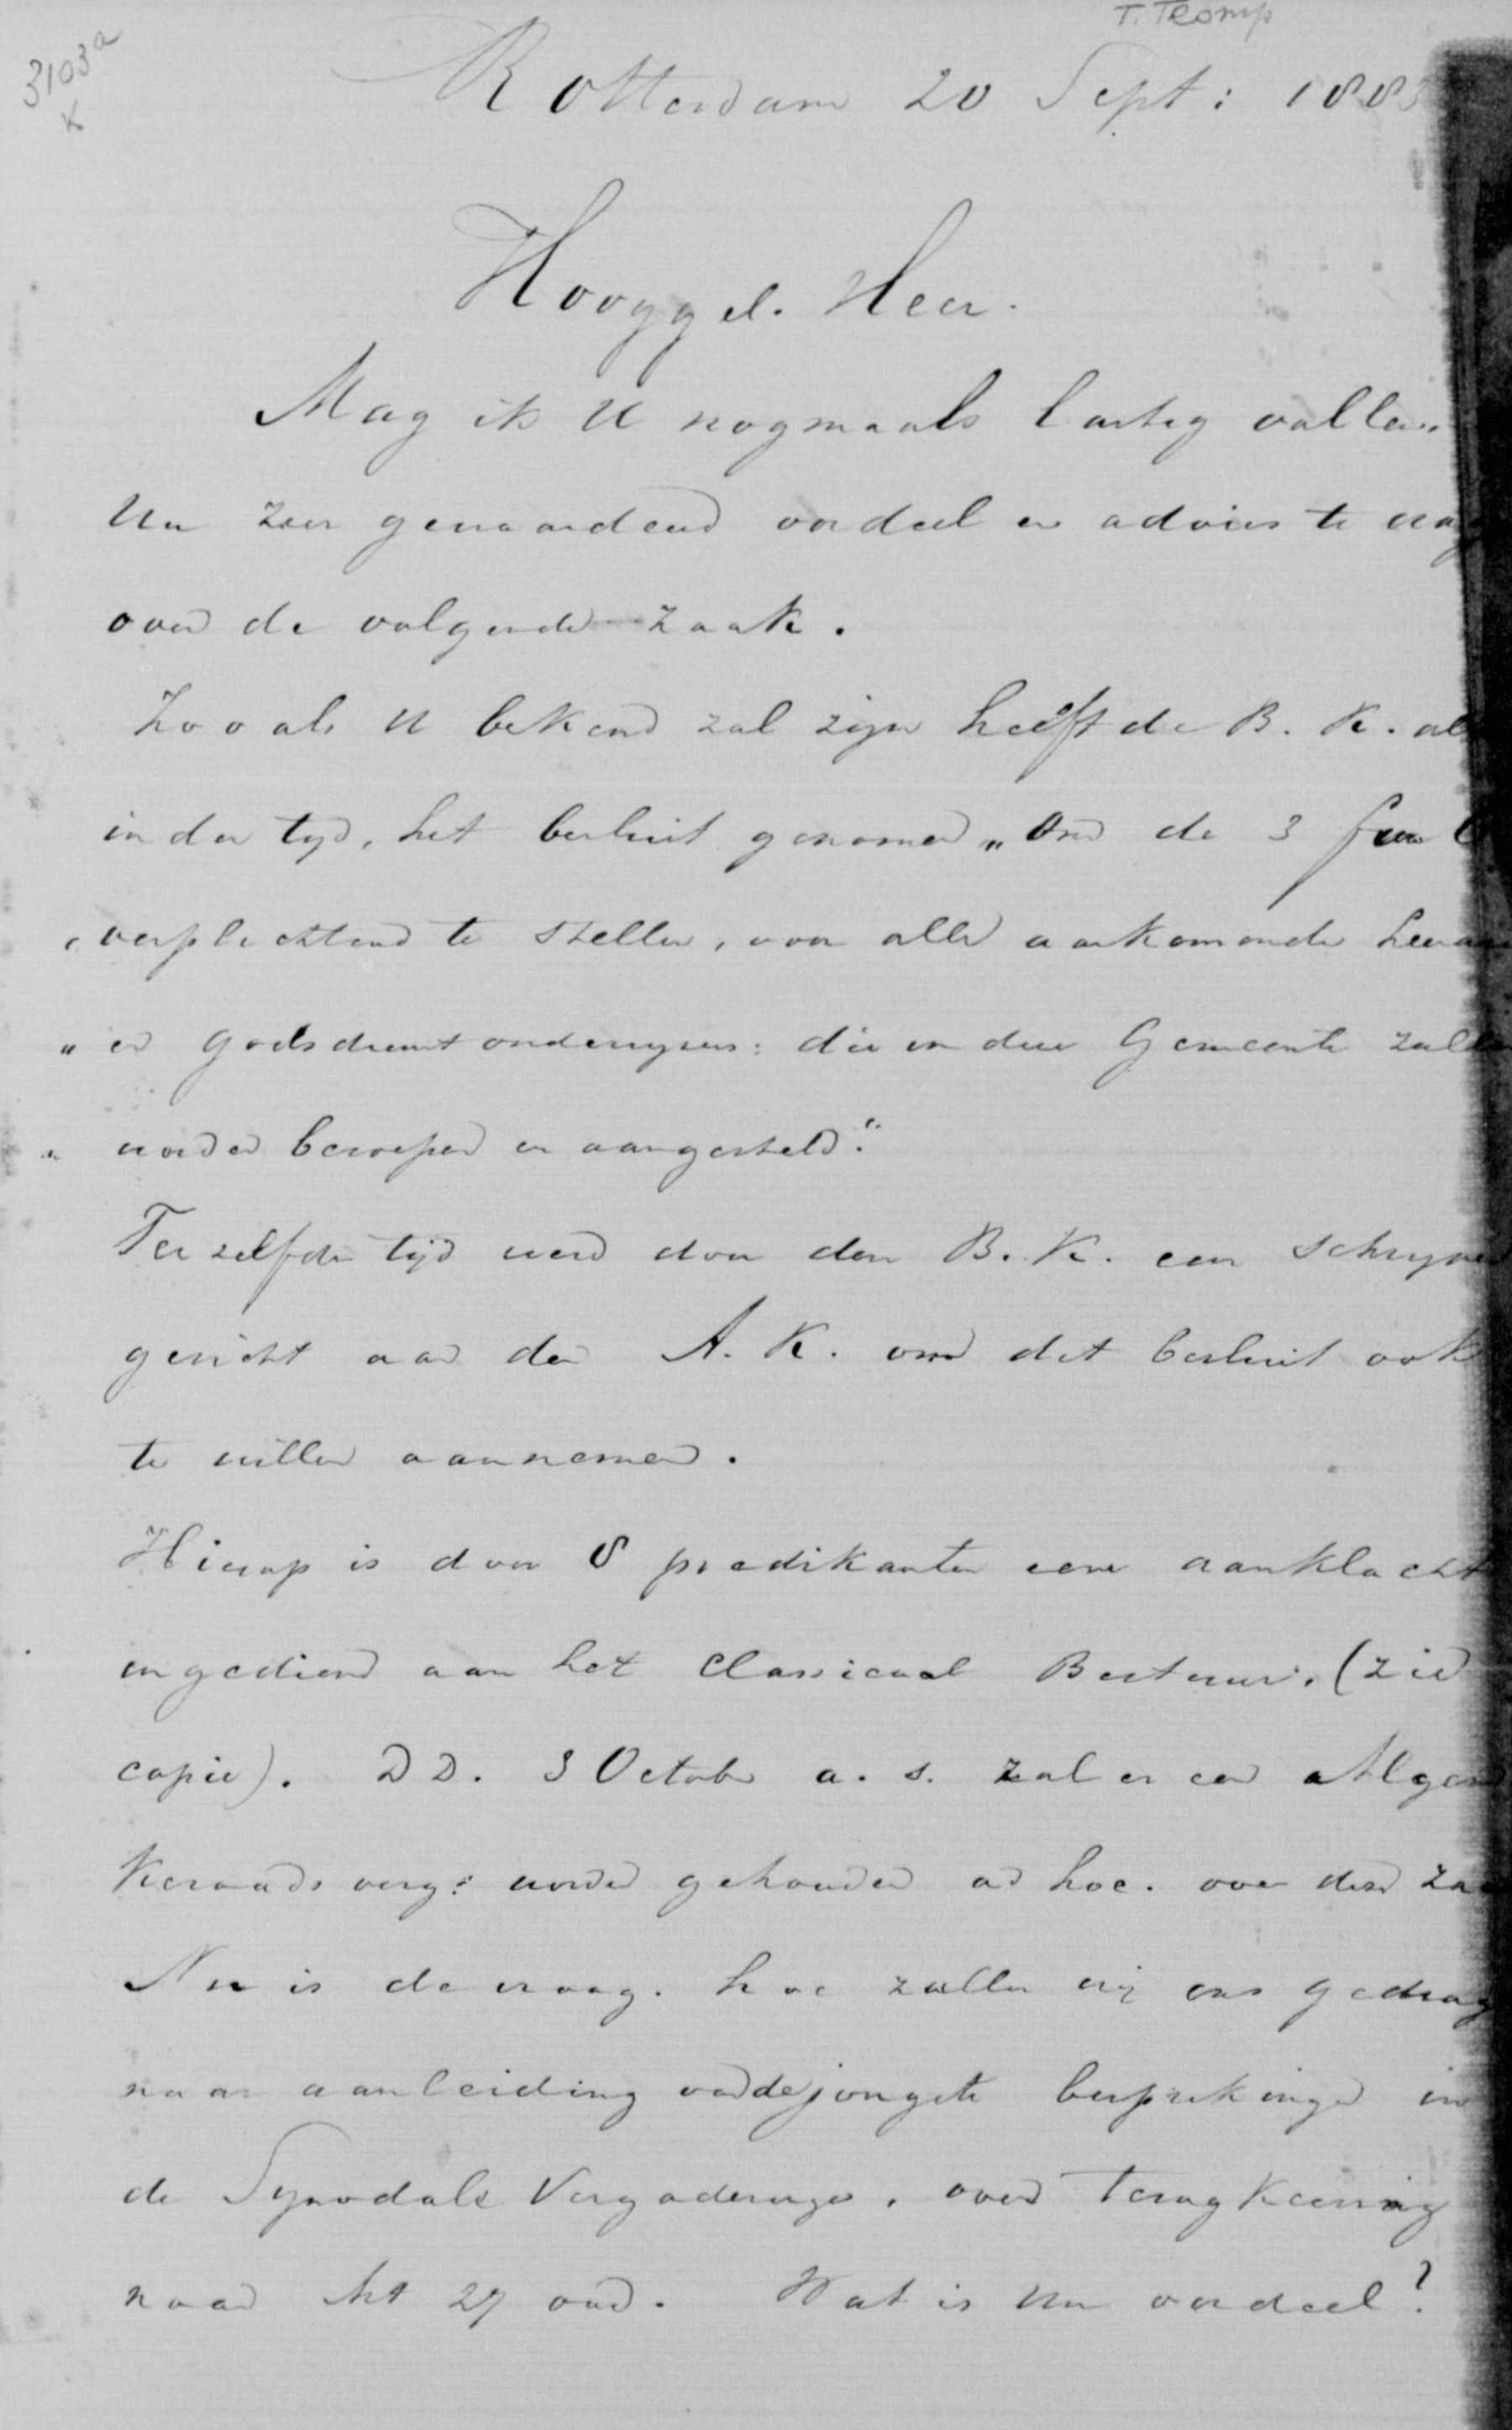 T. Tromp
3103a
x
Rotterdam 20 Sept: 188
Hooggel. Heer.
Mag ik U nogmaals lastig vallen.
Uw zeer gewaardeerd oordeel en advies te
over de volgende zaak.
Zooals U bekend zal zijn heeft de B. K. al
in der tyd, het besluit genomen „Om de 3 for
„verplichtend te stellen, voor alle aankomende
„en godsdienstonderwyzers: die in deze Gemeente zullen
„worden beroepen en aangesteld."
Terzelfder tijd werd door den B. K. een schryven
gericht aan den A. K. om dit besluit ook
te willen aannemen.
Hierop is door 8 predikanten eene aanklacht
ingediend aan het Classicaal Bestuur. (zie
copie). DD. 3 October a. s. zal er een Algem
Keraads verg: worden gehouden ad hoc. over deze
Nu is de vraag. hoe zullen wij ons gedrag
naar aanleiding van de jongste besprekingen in
de Synodale Vergaderinge, over terugkeering
naar Art 27 oud. Wat is Uw oordeel?